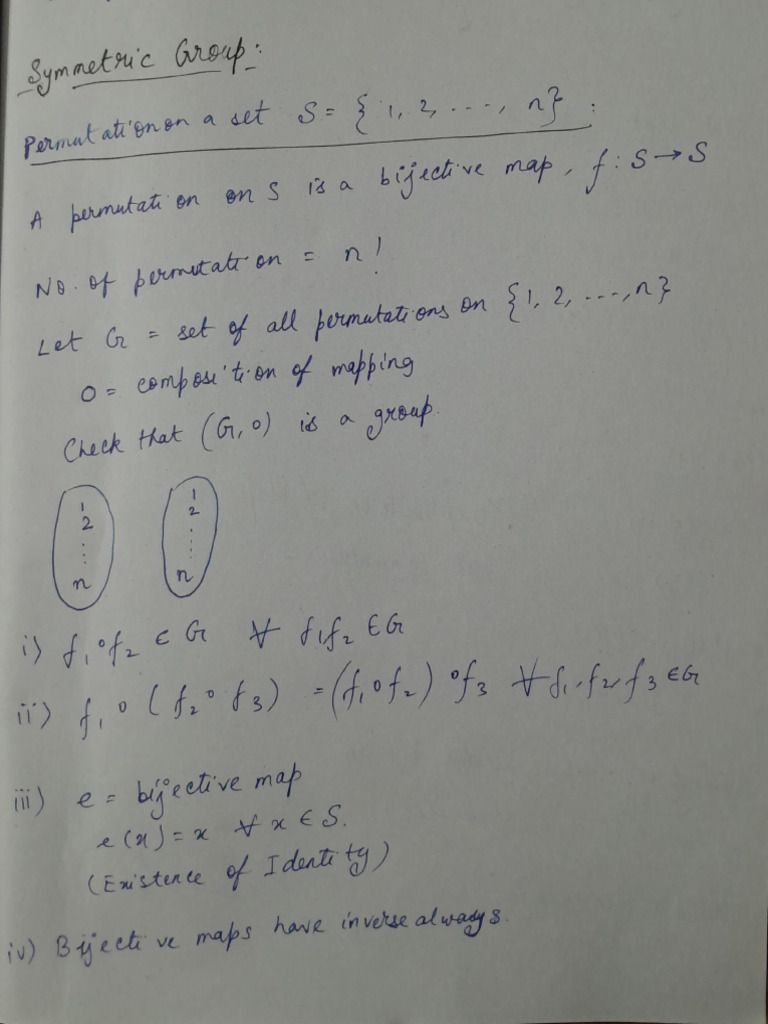 Symmetric Group:
Permutation on a set S = { 1, 2, ...., n} :
A permutation on S is a bijective map, f : S → S
No. of permutation = n!
Let G = set of all permutations on {1, 2, ...,n}
o = composition of mapping
Check that (G, o) is a group.
1 1
2 2
⋮ ⋮
n n
i) f₁ ∘ f₂ ∈ G ∀ f₁f₂ ∈ G
ii) f₁ ∘ (f₂ ∘ f₃) = (f₁ ∘ f₂) ∘ f₃ ∀ f₁, f₂, f₃ ∈ G
iii) e = bijective map
e(x) = x ∀ x ∈ S.
(Existence of Identity)
iv) Bijective maps have inverse always.